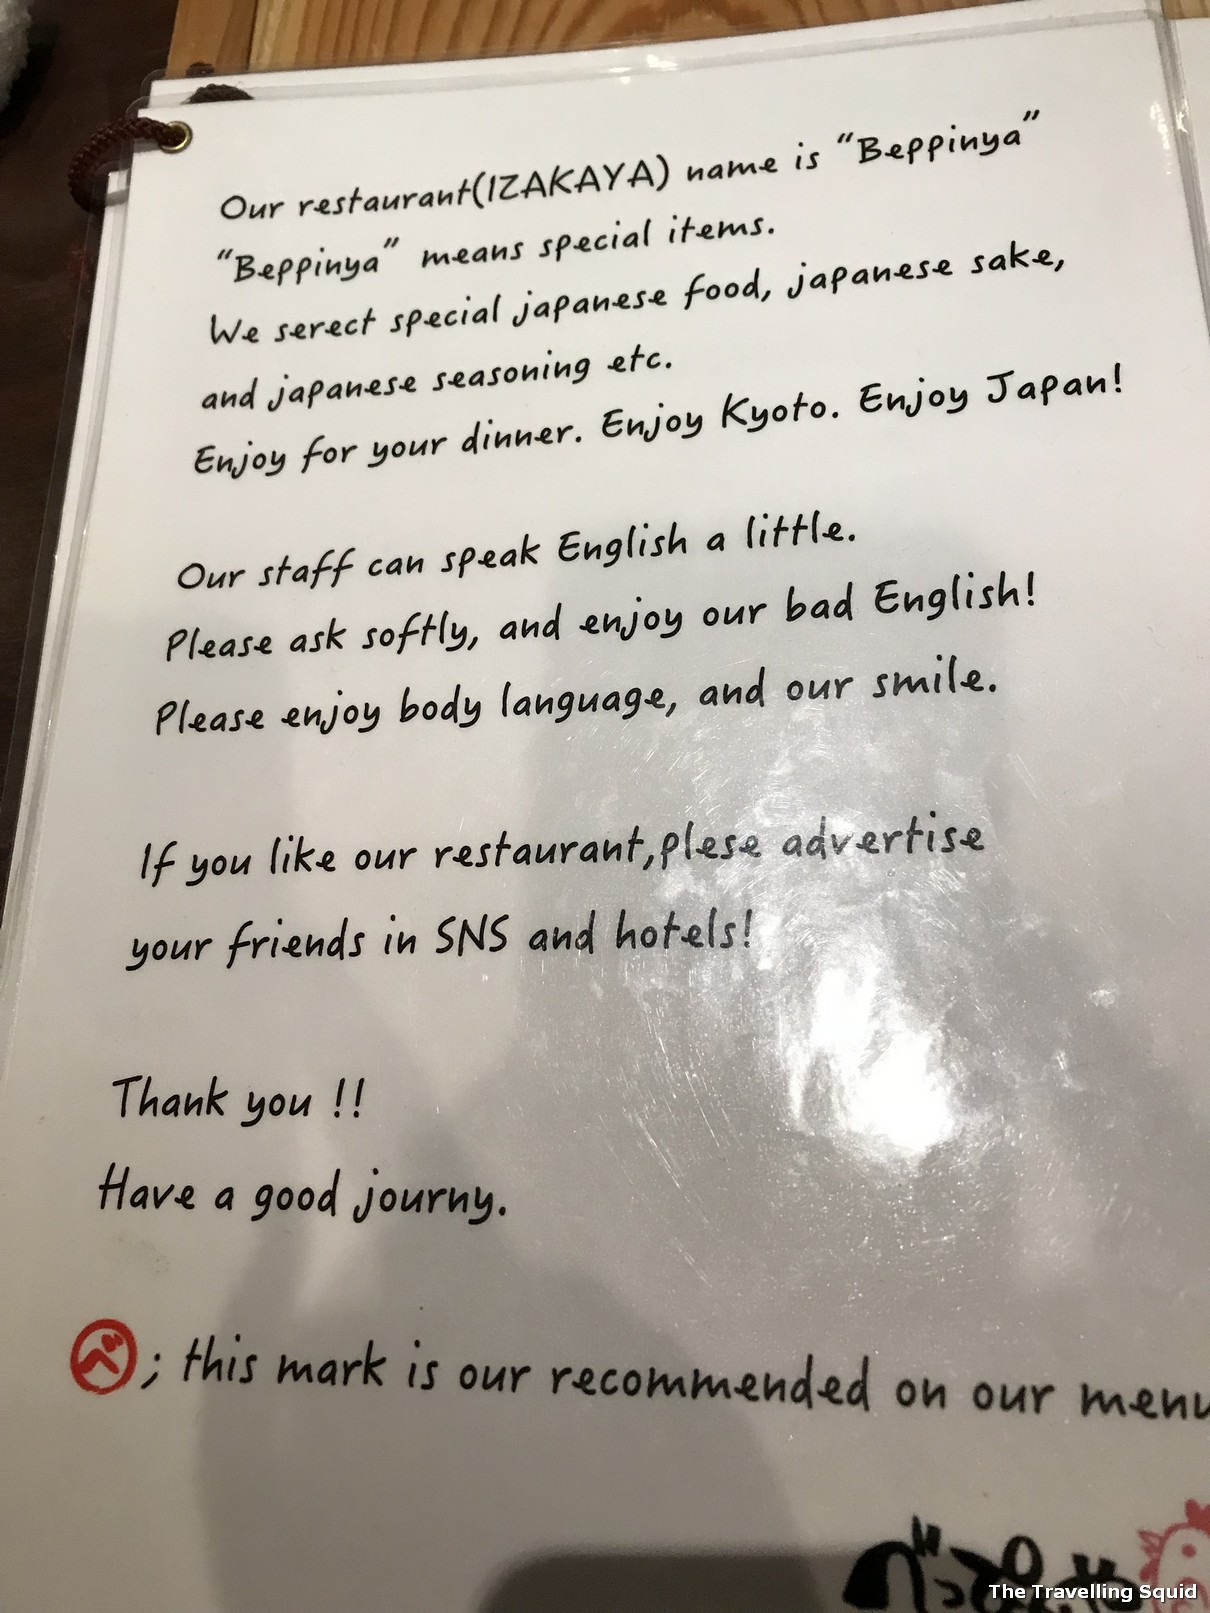 Our restaurant(IZAKAYA) name is “Beppinya”
“Beppinya” means special items.
We serect special japanese food, japanese sake,
and japanese seasoning etc.
Enjoy for your dinner. Enjoy Kyoto. Enjoy Japan!
Our staff can speak English a little.
Please ask softly, and enjoy our bad English!
Please enjoy body language, and our smile.
If you like our restaurant,plese advertise
your friends in SNS and hotels!
Thank you !!
Have a good journy.
; this mark is our recommended on our menu
The Travelling Squid